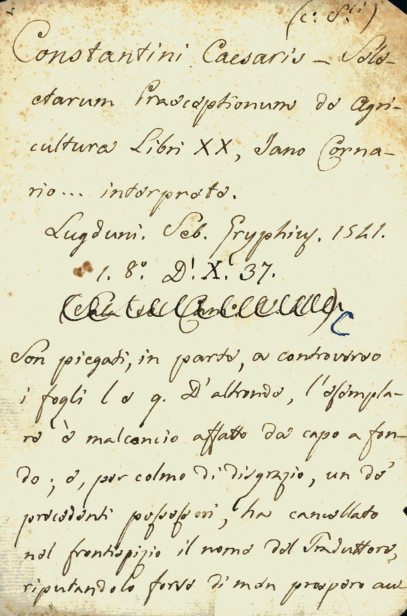 (c. S.i)
Constantini Caesaris – Sele-
ctarum Praeceptionum de Agri-
cultura Libri XX, Jano Corna-
rio... interprete.
Lugduni. Seb. Gryphius. 1541.
1. 8.° D.! X.! 37.
C
Son piegati, in parte, a controverso
i fogli l e q. D'altronde, l'esempla-
re è malconcio affatto da capo a fon-
do; e, per colmo di disgrazia, un de'
precedenti possessori, ha cancellato
nel frontispizio il nome del Traduttore,
riputandolo forse di men prospero au